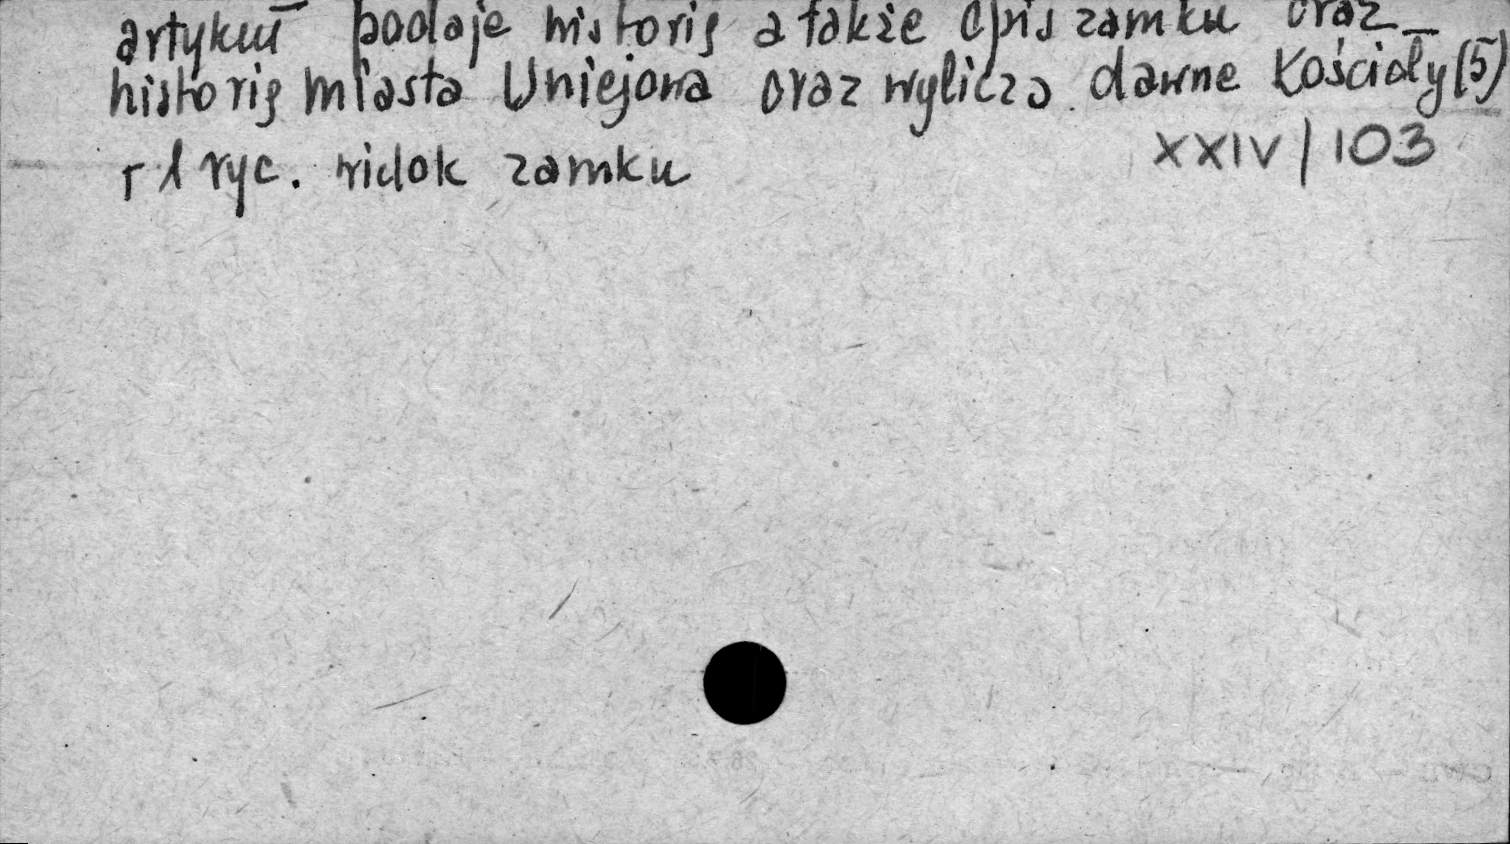 artykuł podaje historię a także opis zamku oraz
historię miasta Uniejowa oraz wylicza dawne kościoły (5)
r 1 ryc. widok zamku
XXIV/103